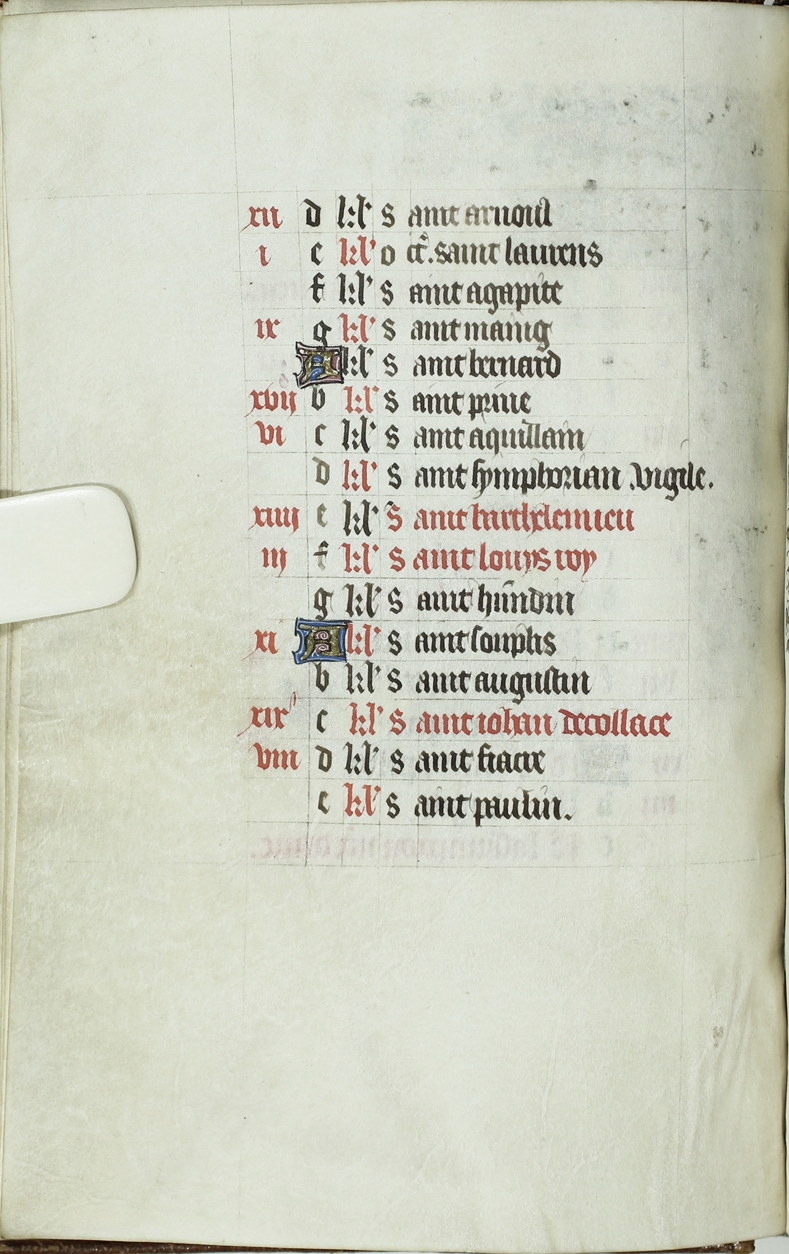 xii d kl' s aint arnoul
i e kl' o ct. saint laurens
f kl' s aint agapite
ix g kl' s aint manig
A kl' s aint bernard
xvij b kl' s aint priue
vi c kl' s aint aquillain
d kl' s aint symphorian .vigile.
xiiij e kl' s aint barthelemieu
iij f kl' s aint louys roy
g kl' s aint
xi A kl' s aint souplis
b kl' s aint augustin
xix c kl' s aint iohan decollace
viii d kl' s aint fiacre
e kl' s aint paulin.